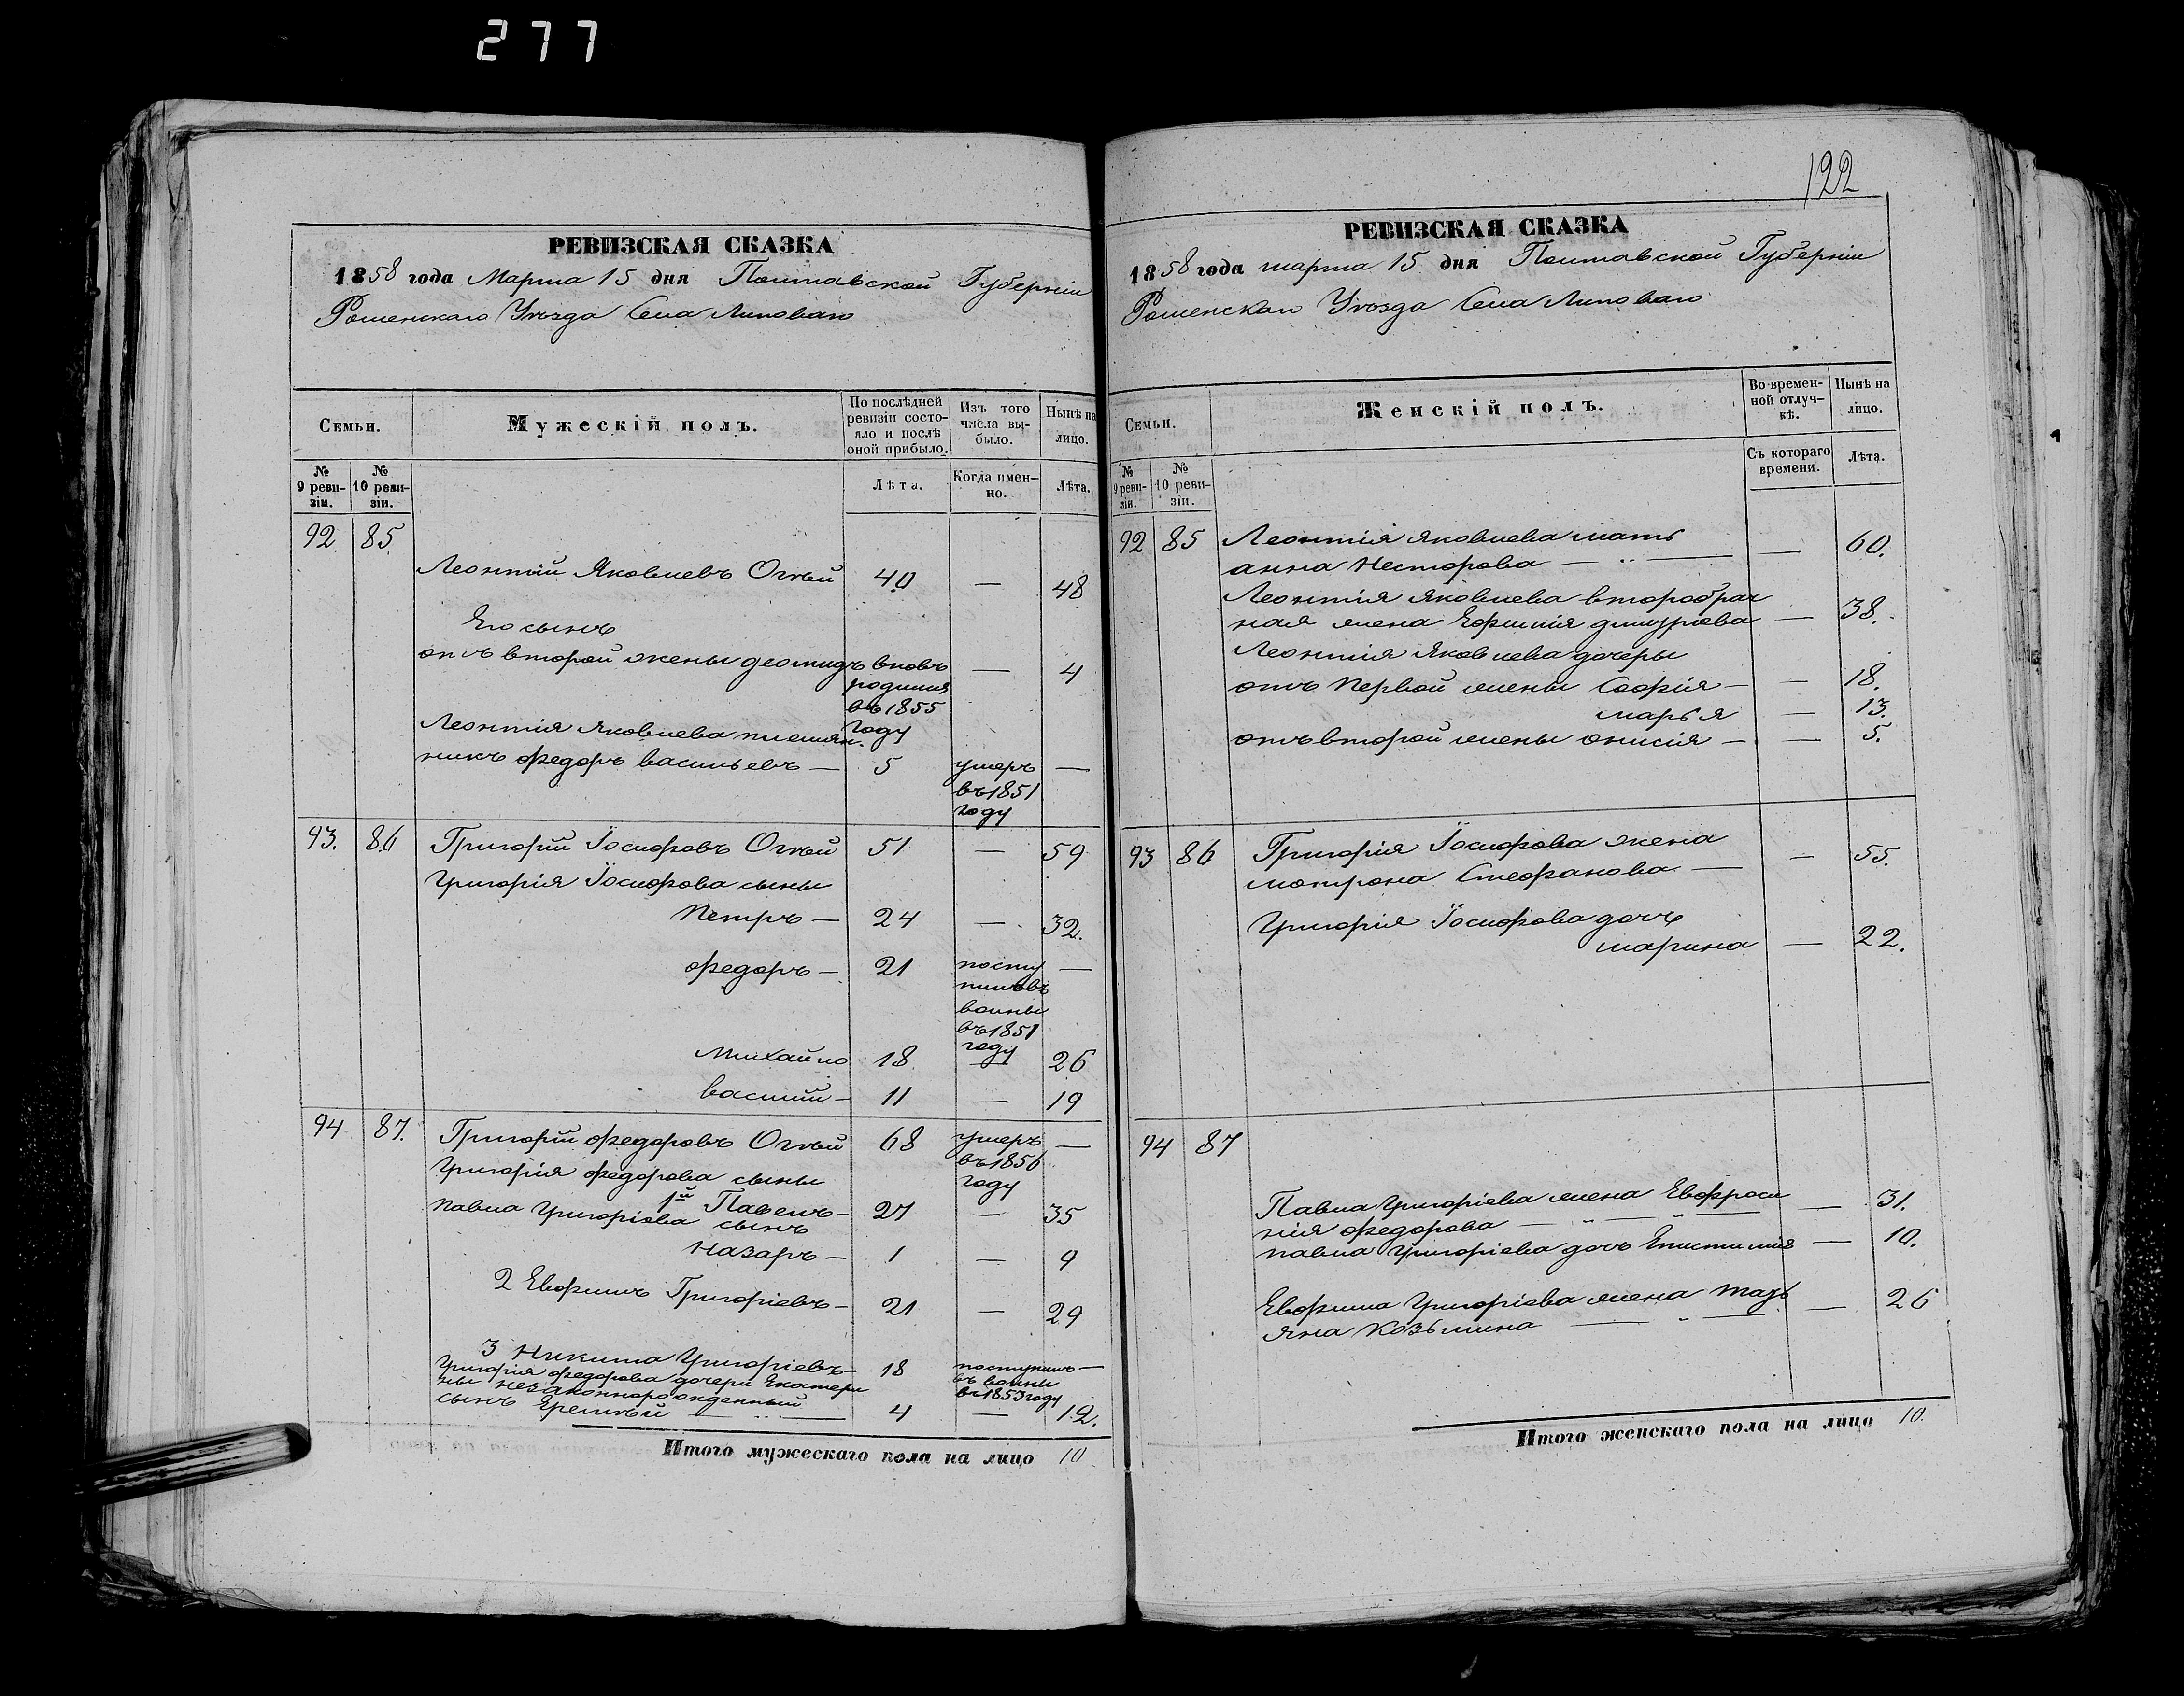 277
РЕВИЗСКАЯ СКАЗКА
1858 года Марта 15 дня Полтавской Губерніи
Роменскаго Уѣзда Села Липоваго
Семьи.
Мужескій полъ.
По послѣдней ревизіи состояло и послѣ оной прибыло.
Изъ того числа выбыло.
Нынѣ на лицо.
№ 9 ревизіи.
№ 10 ревизіи.
Лѣта.
Когда именно.
Лѣта.
92 85
Леонтій Яковлевъ Огнѣй 40 — 48
Его сынъ
отъ второй жены Деомидъ вновь — 4
родился
въ 1855
году
Леонтія Яковлева племян.
никъ Федоръ Васильевъ — 5 умеръ —
въ 1851
году
93. 86 Григорій Іосифовъ Огнѣй 51 — 59
Григорія Іосифова сыны
Петръ — 24 — 32.
Федоръ — 21 посту —
пилъ въ
воины
въ 1851
году
Михайло 18 — 26
Василий — 11 — 19
94 87. Григорій Федоровъ Огнѣй 68 умеръ —
въ 1856
году
Григорія Федорова сыны
1й Павелъ — 27 — 35
Павла Григоріева сынъ
Назаръ — 1 — 9
2 Евфимъ Григоріевъ — 21 — 29
3 Никита Григоріевъ — 18 поступилъ —
въ воины
въ 1853 году
Григорія Федорова дочери Екатери
ны незаконнорожденный
сынъ Еремѣй — 4 — 12.
Итого мужескаго пола на лицо 10
122
РЕВИЗСКАЯ СКАЗКА
1858 года марта 15 дня Полтавской Губерніи
Роменскаго Уѣзда Села Липоваго
Семьи.
Женскій полъ.
Во временной отлучкѣ.
Нынѣ на лицо.
№ 9 ревизіи.
№ 10 ревизіи.
Съ котораго времени.
Лѣта.
92 85 Леонтія Яковлева мать
анна Несторова — — 60.
Леонтія Яковлева второбрач
ная жена — 38.
Леонтія Яковлева дочеры
отъ Первой жены Софія — — 18.
марья — 13.
отъ второй жены онисія — — 5.
93 86 Григорія Іосифова жена
мотрона Стефанова — — 55.
Григорія Іосифова дочь
марина — 22.
94 87
Павла Григоріева жена Евфроси
нія Федорова — — 31.
павла Григоріева дочь Епистимія — 10.
Евфима Григоріева жена Тать
яна Козьмина — — 26
Итого женскаго пола на лицо 10.